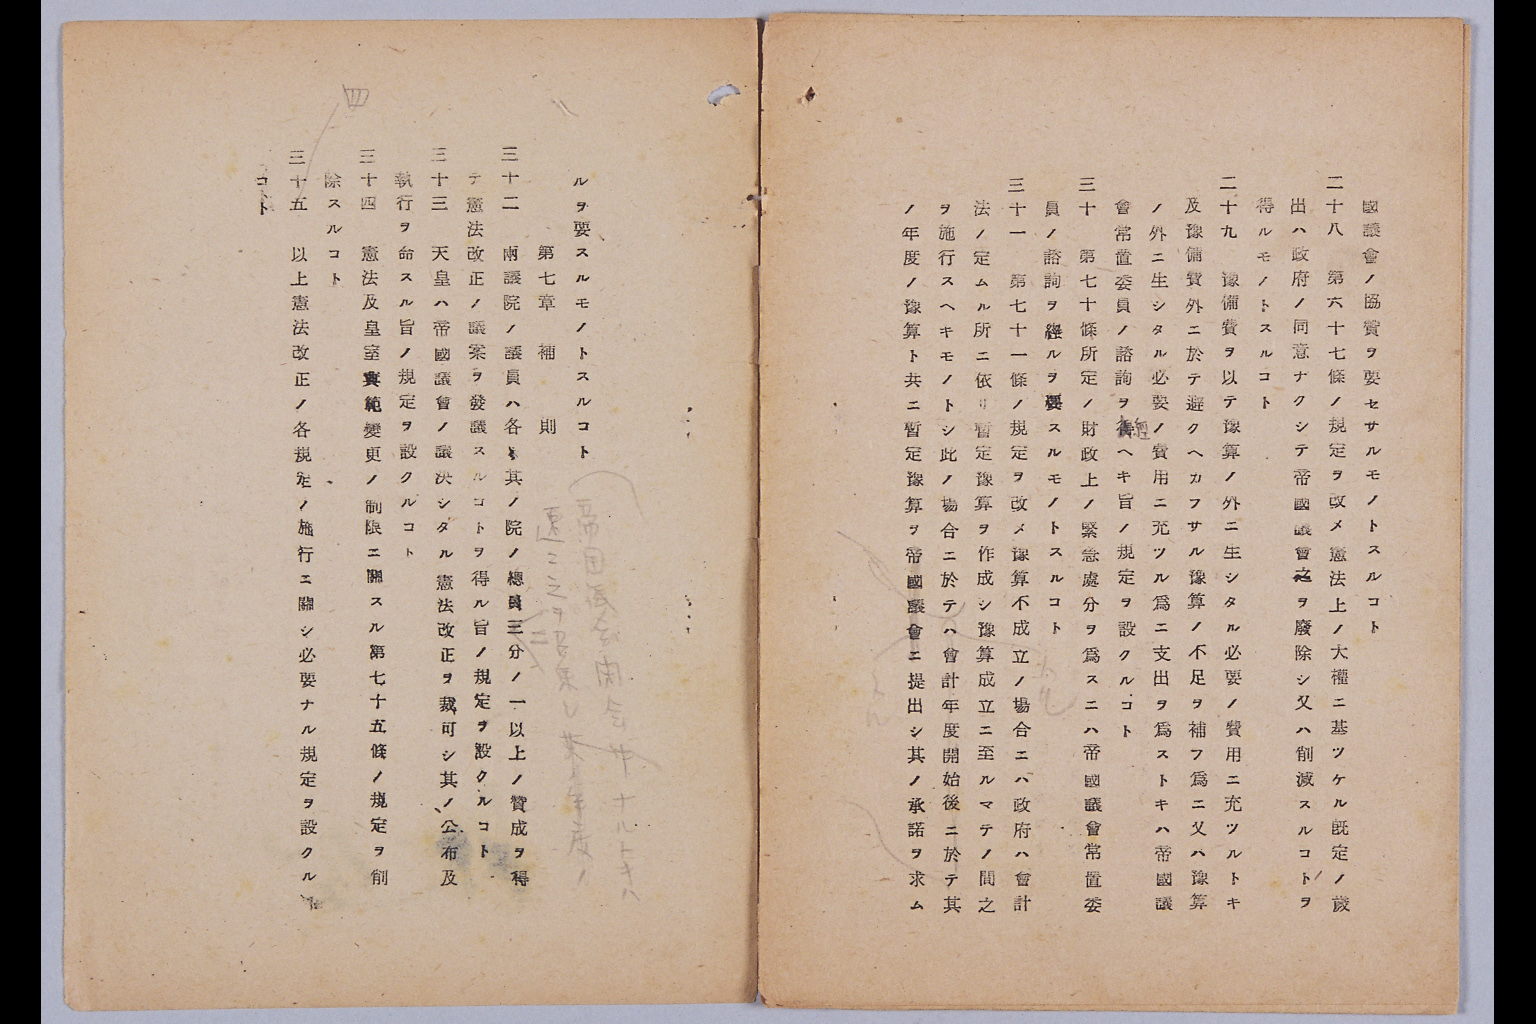 國議會ノ協賛ヲ要セサルモノトスルコト
二十八　第六十七條ノ規定ヲ改メ憲法上ノ大權ニ基ツケル既定ノ歲
出ハ政府ノ同意ナクシテ帝國議會之ヲ廢除シ又ハ削減スルコトヲ
得ルモノトスルコト
二十九　豫備費ヲ以テ豫算ノ外ニ生シタル必要ノ費用ニ充ツルトキ
及豫備費外ニ於テ避クヘカラサル豫算ノ不足ヲ補フ爲ニ又ハ豫算
ノ外ニ生シタル必要ノ費用ニ充ツル爲ニ支出ヲ爲ストキハ帝國議
會常置委員ノ諮詢ヲ經ヘキ旨ノ規定ヲ設クルコト
三十　第七十條所定ノ財政上ノ緊急處分ヲ爲スニハ帝國議會常置委
員ノ諮詢ヲ經ルヲ要スルモノトスルコト
三十一　第七十一條ノ規定ヲ改メ豫算不成立ノ場合ニハ政府ハ會計
法ノ定ムル所ニ依リ暫定豫算ヲ作成シ豫算成立ニ至ルマテノ間之
ヲ施行スヘキモノトシ此ノ場合ニ於テハ會計年度開始後ニ於テ其
ノ年度ノ豫算ト共ニ暫定豫算ヲ帝國議會ニ提出シ其ノ承諾ヲ求ム
ルヲ要スルモノトスルコト
帝国議会開会中ナルトキハ
第七章　補　則
三十二　兩議院ノ議員ハ各々其ノ院ノ總員三分ノ一以上ノ賛成ヲ得
テ憲法改正ノ議案ヲ發議スルコトヲ得ル旨ノ規定ヲ設クルコト
三十三　天皇ハ帝國議會ノ議決シタル憲法改正ヲ裁可シ其ノ公布及
執行ヲ命スル旨ノ規定ヲ設クルコト
三十四　憲法及皇室典範變更ノ制限ニ關スル第七十五條ノ規定ヲ削
除スルコト
四
三十五　以上憲法改正ノ各規定ノ施行ニ關シ必要ナル規定ヲ設クル
コト